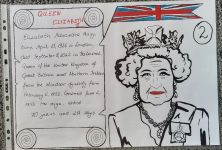 QUEEN
ELIZABETH
Elizabeth Alexandra Mary
born April 21, 1926 in London,
died September 8, 2022 in Balmoral.
Queen of the United Kingdom of
Great Britain and Northern Ireland
from the Windsor dynasty from
February 6, 1952. Crowned June 2,
1953. The reign lasted
70 years and 214 days
2